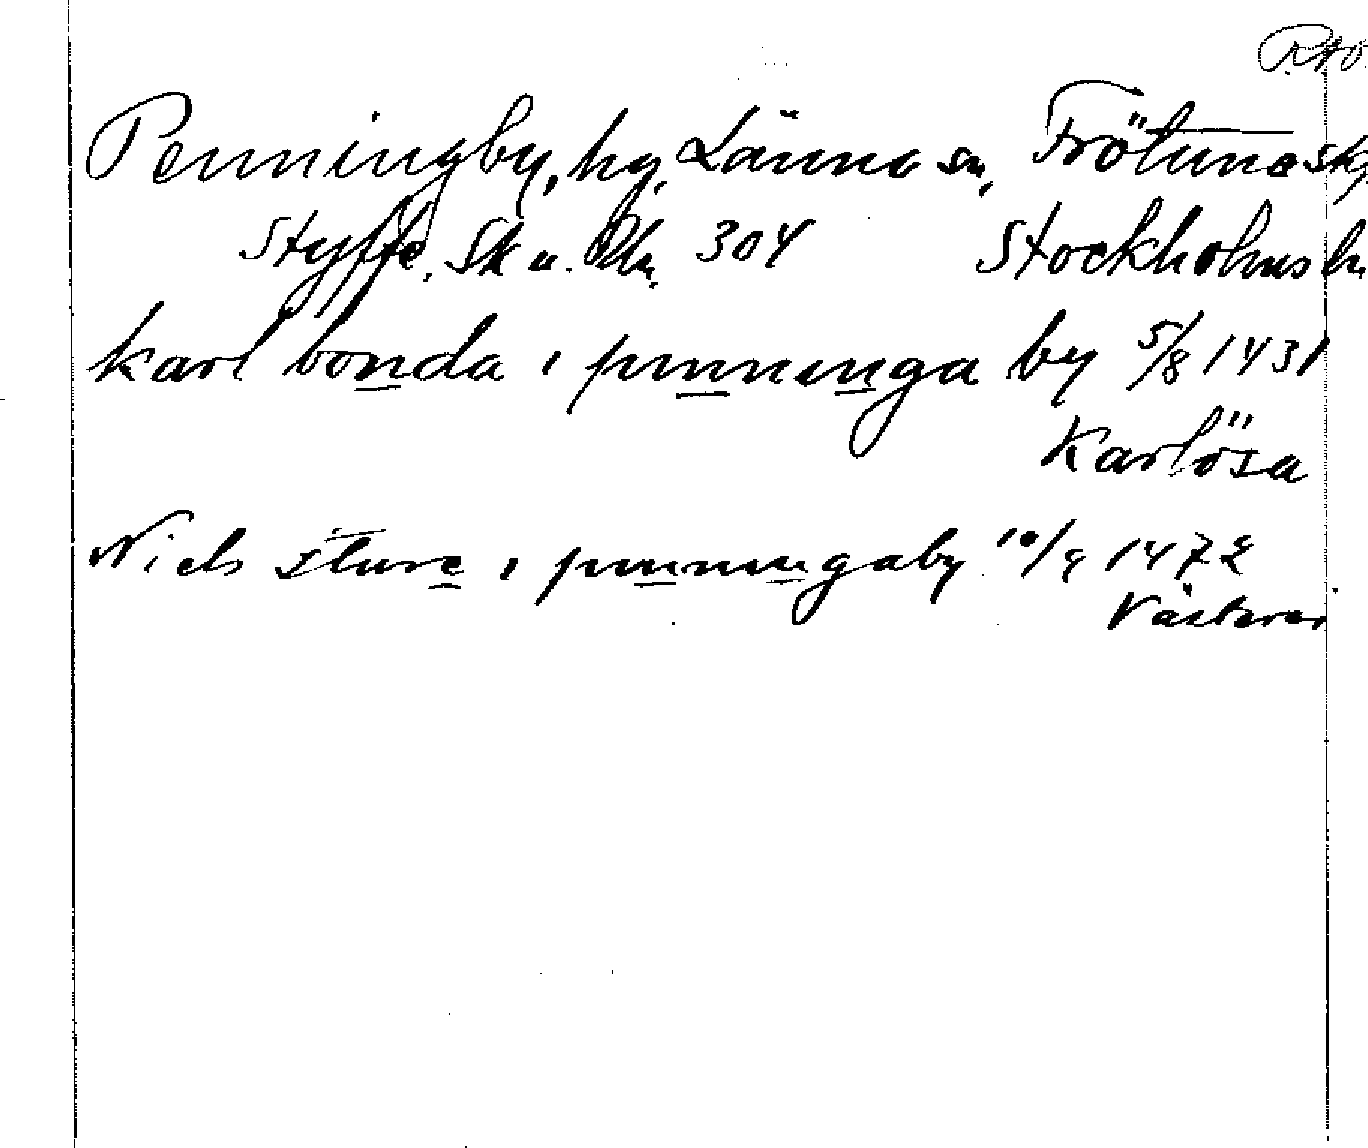 Penningby, hg. Länna sn, Frötuna skg
Styffe, Sk u. 304 Stockholms
karl bonda i pnnnnnga by 5/8 1431
Karlösa
Niels sture i pnnnnngaby 10/9 1472
Västerås